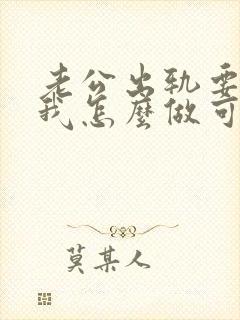 老公出轨要
我怎麽做可
莫某人